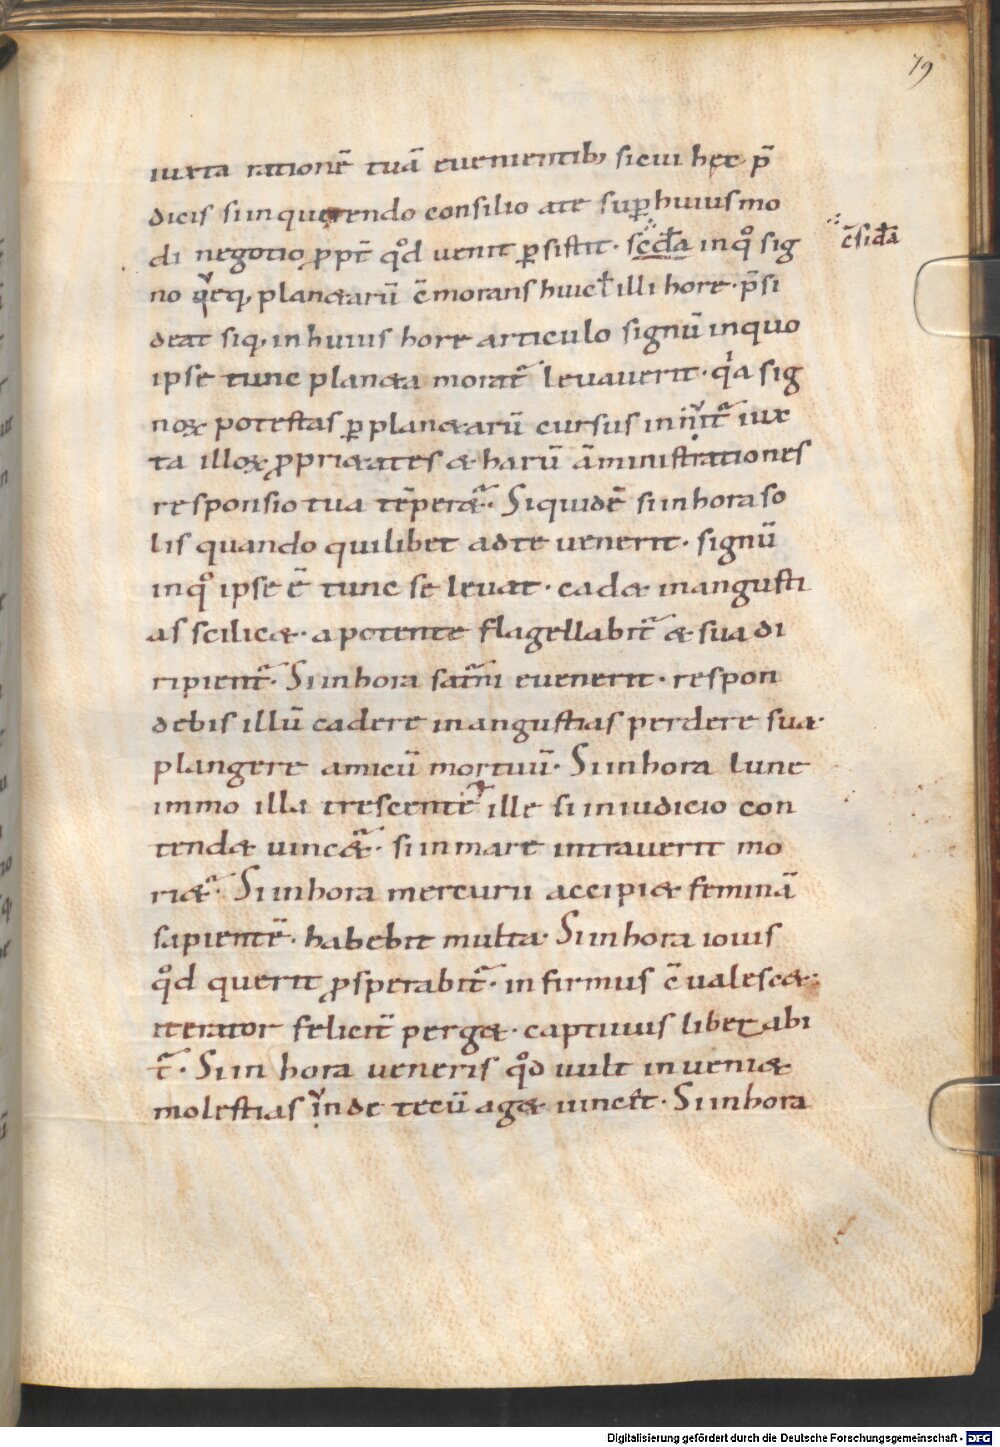 79
iuxta rationē tuā euenientib; sicui hec p̄
dicis siinquerendo consilio ate sup̱huiusmo
di negotio ꝓpt̄ qͦd uenit p̱sistit · scd̄a inqͦ sig
c̄sid̄a
no q̇eq; planetarū c̄morans huic ł illi hore · p̄si
deat siq; inhuius hore articulo signū inquo
ipse tunc planeta morat̄ leuauerit · qͥa sig
noꝝ potestas p̱ planetarū cursus in iux
ta illoꝝ ꝓprietates & harū āministrationes
responsio tua tēperet̄ · Siquidē siinhora so
lis quando quilibet adte uenerit · signū
inqͦ ipse ē tunc se leuat · cadet inangusti
as scilicet · apotente flagellabit̄ & sua di
ripient̄ · Siinhora sat̄ni euenerit · respon
debis illū cadere inangustias perdere sua ·
plangere amicū mortuū · Siinhora lune
immo illa crescente ille si iniudicio con
tendet uincet̄ · siinmare intrauerit mo
riet̄ · Siinhora mercurii accipiet feminā
sapientē · habebit multa · Siinhora iouis
qͦd querit ꝓsperabit̄ · infirmus c̄ualescet
iterator felicit̄ perget · captiuus liber abi
t̄ · Siin hora ueneris qͦd uult inueniet
molestias inde tecū aget uincet · Siinhora
Digitalisierung gefördert durch die Deutsche Forschungsgemeinschaft - DFG